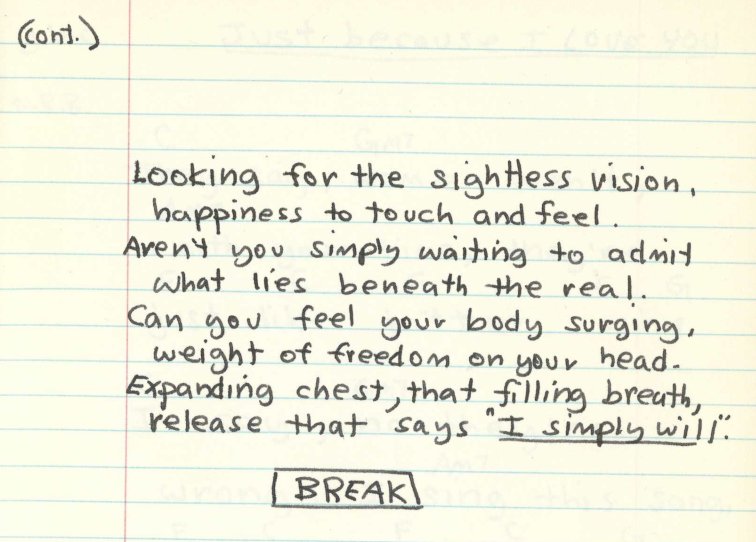 (cont.)
Looking for the sightless vision,
happiness to touch and feel.
Aren't you simply waiting to admit
what lies beneath the real.
Can you feel your body surging,
weight of freedom on your head.
Expanding chest, that filling breath,
release that says "I simply will".
BREAK